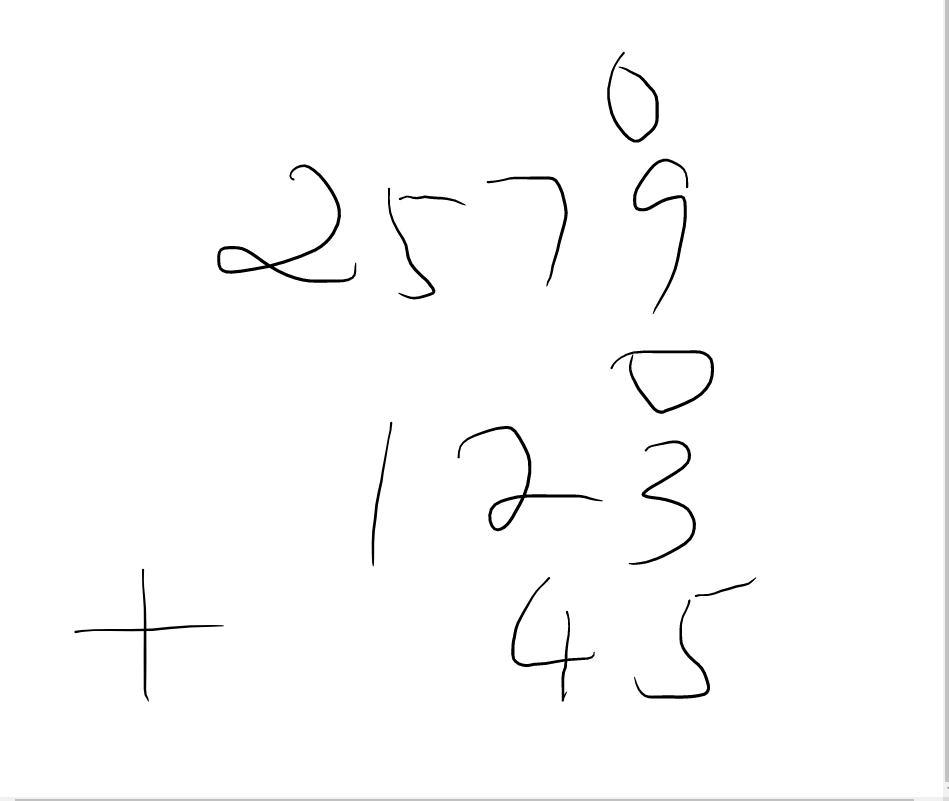 0
2579
0
123
+ 45